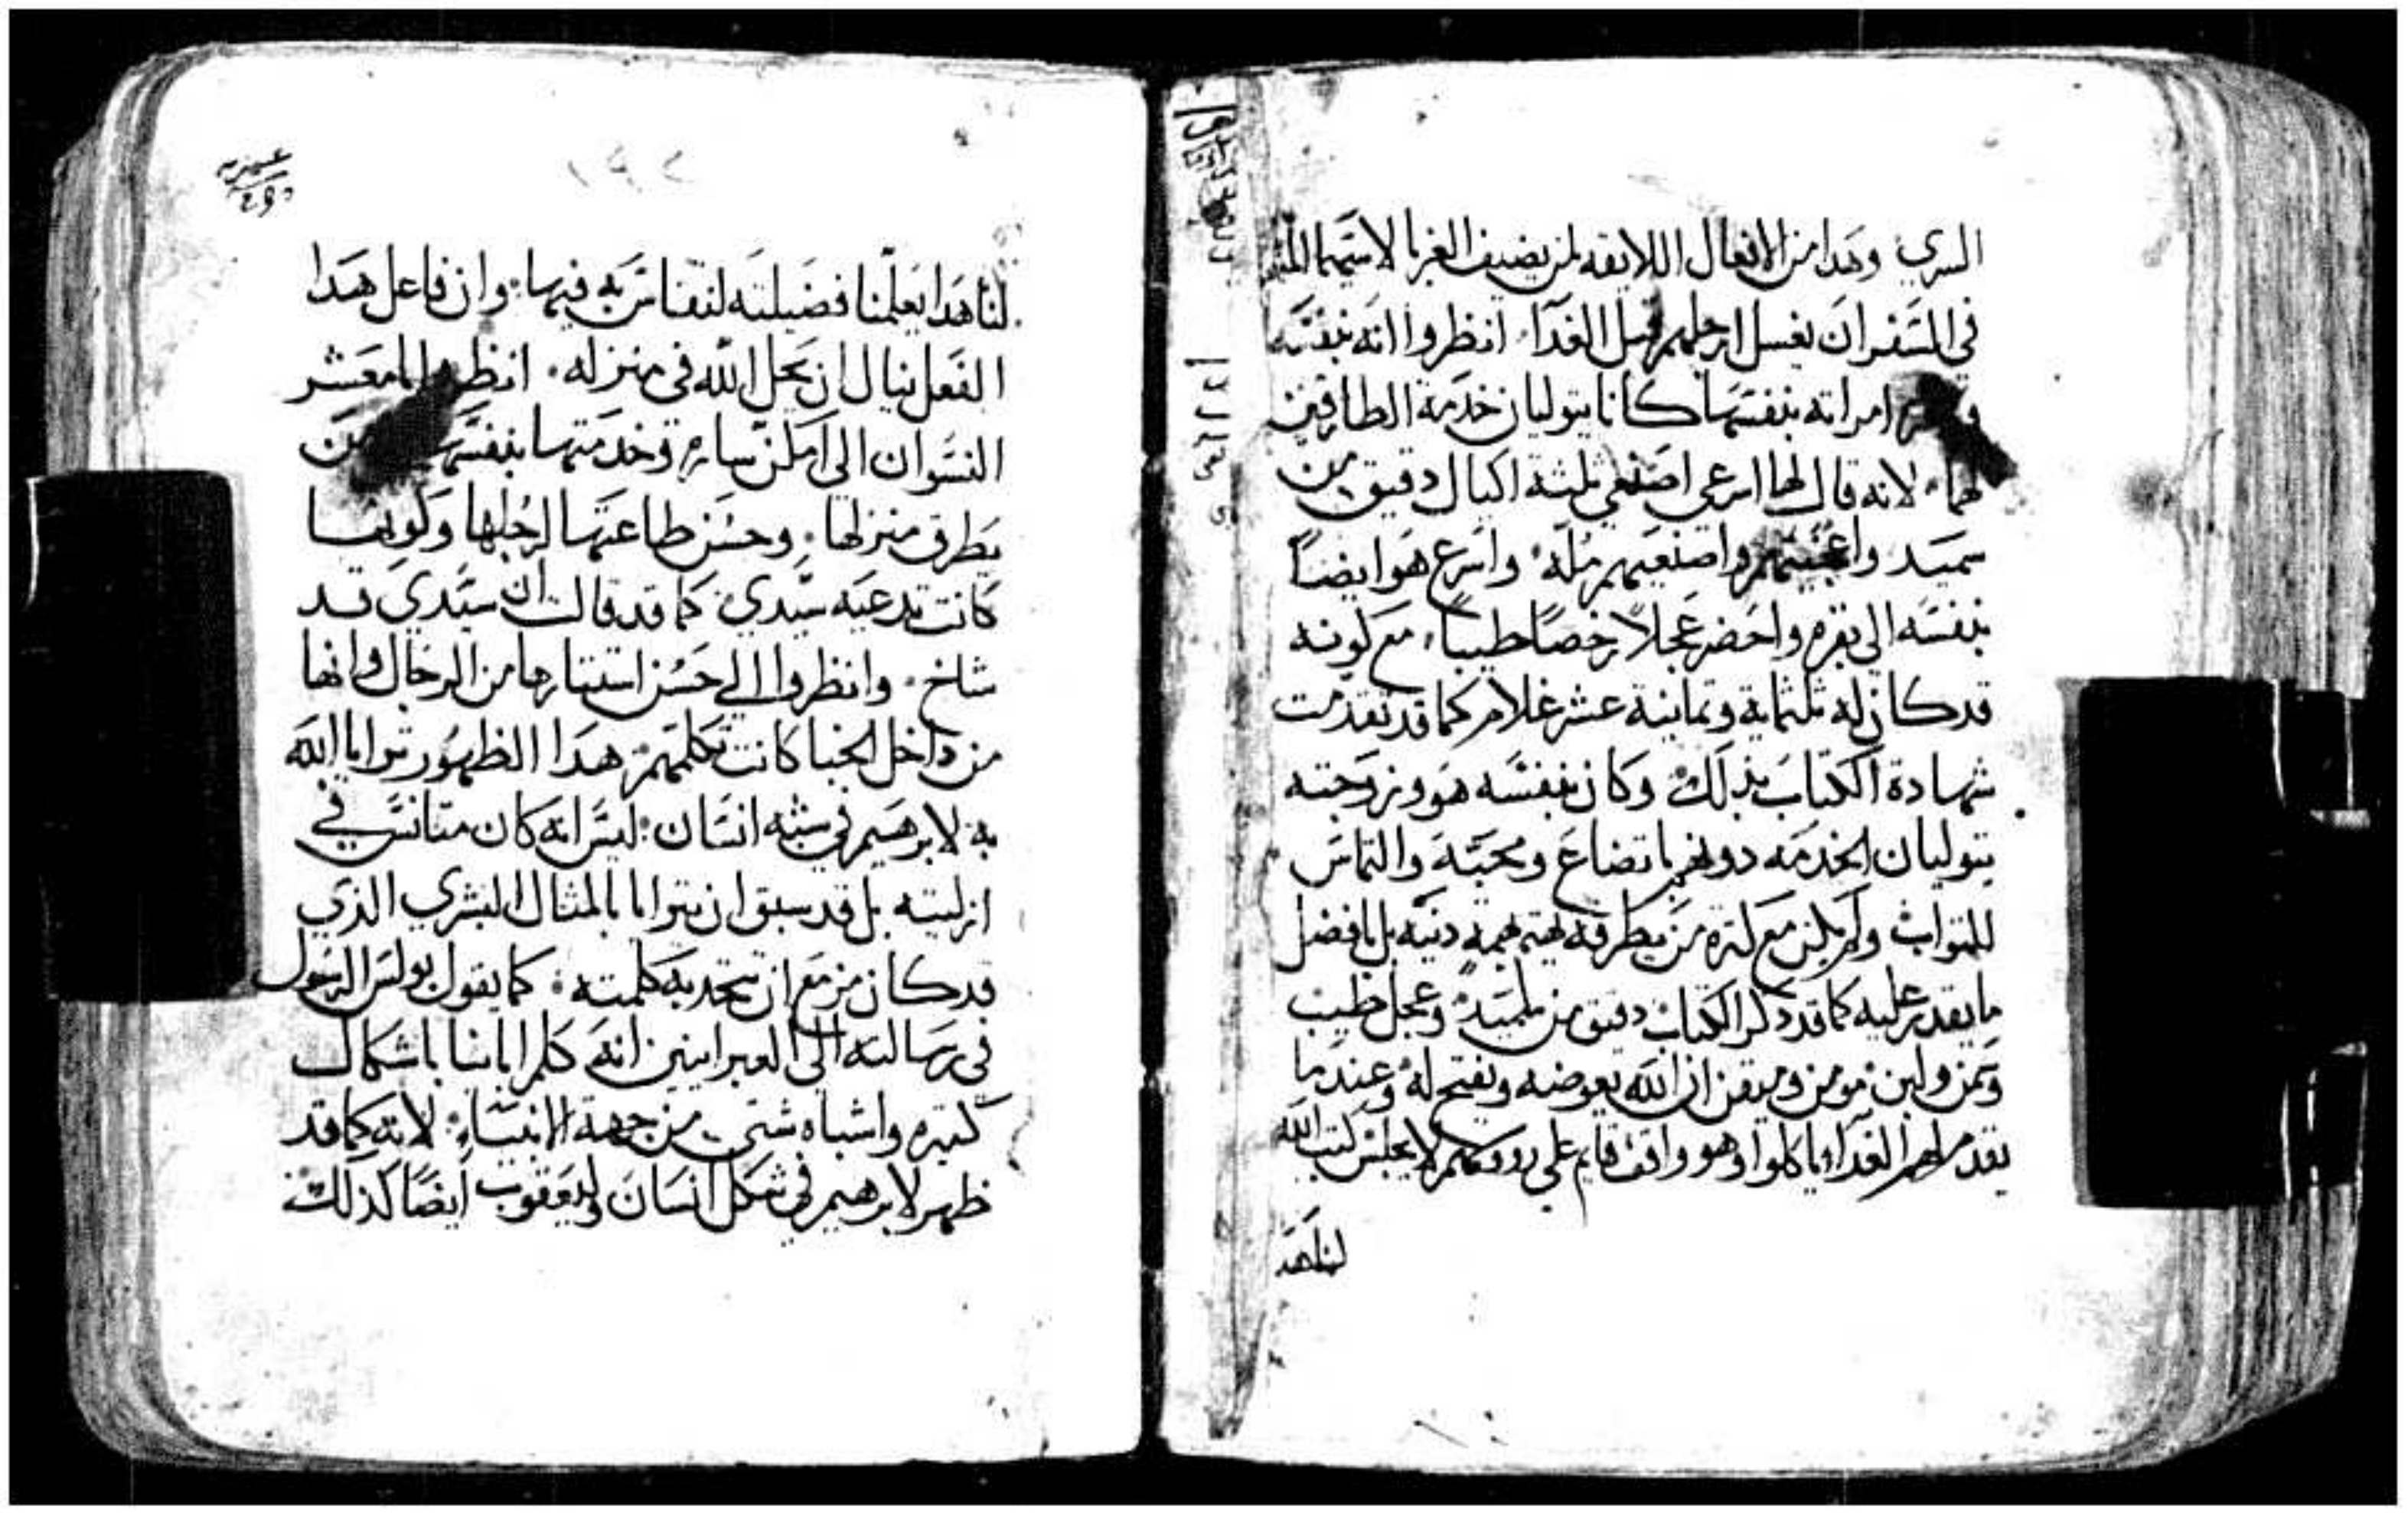 السري وهدا من الافعال اللايقه لمن يضيف الغربا لاسيما
في السفر ان يغسل ارجلهم قبل الغدا. انظروا انه بنفسه
امراته بنفسها كانا يتوليان خدمة الطارقين
لهما. لانه قال لها اسرعي اصنعي ثلثة اكيال دقيق من
سميد واعجنيهم واصنعيهم مله. واسرع هو ايضاً
بنفسه الى بقره واحضر عجلاً رخصاً طيباً. مع كونه
قد كان له ثلثماية وثمانية عشر غلام كما قد تقدمت
شهادة الكتاب بذلك وكان بنفسه هو وزوجته
يتوليان الخدمه دونهم باتضاع ومحبة والتماس
للثواب ولم يكن مع كثره من يطرقه يهتم بهمه دنيه بل بافضل
ما يقدر عليه كما قد دكر الكتاب دقيق من سميد وعجل طيب
وسمن ولبن مومن وميقن ان الله يعوضه ويفتح له وعندما
يقدم لهم الغدا ياكلوا وهو واقف قايم على رووسهم لا يجلس كتب الله
لنا هد
لنا هدا يعلمنا فضيلته لنتفاس به فيها. وان فاعل هدا
الفعل ينال ان يحل الله في منزله. انظروا يامعشر
النسوان الى امكن ساره وخدمتها بنفسها من
يطرق منزلها. وحسن طاعتها لرجلها وكونها
كانت تدعيه سيدي. كما قد قالت ان سيدي قد
شاخ. وانظروا الى حسن استتارها من الرجال وانها
من داخل الخبا كانت تكلمهم. هدا الظهور تراياالله
به لابرهيم في شبه انسان. ليس انه كان متانس في
ازليته بل قد سبق ان يترايا بالمثال البشري الذي
قد كان مزمع ان تتحد به كلمته. كما يقول بولس الرسول
في رسالته الى العبرانيين انه كلم اباينا باشكال
كثيره واشباه شتى من جهة الانبياء. لانه كما قد
ظهر لابرهيم في شكل انسان وليعقوب ايضاً كذلك